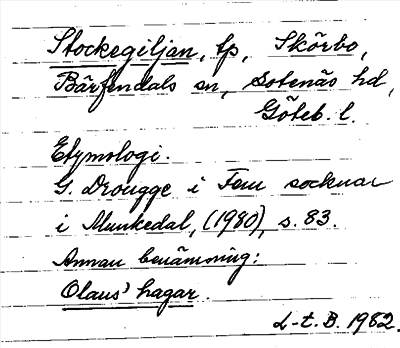 Stockegiljan, tp, Skörbo,
Bärfendals sn, Sotenäs hd,
Göteb. l.
Etymologi.
G. Drougge i Fem socknar
i Munkedal, (1980), s. 83.
Annan benämning:
Olaus' hagar.
L-t. B. 1982.